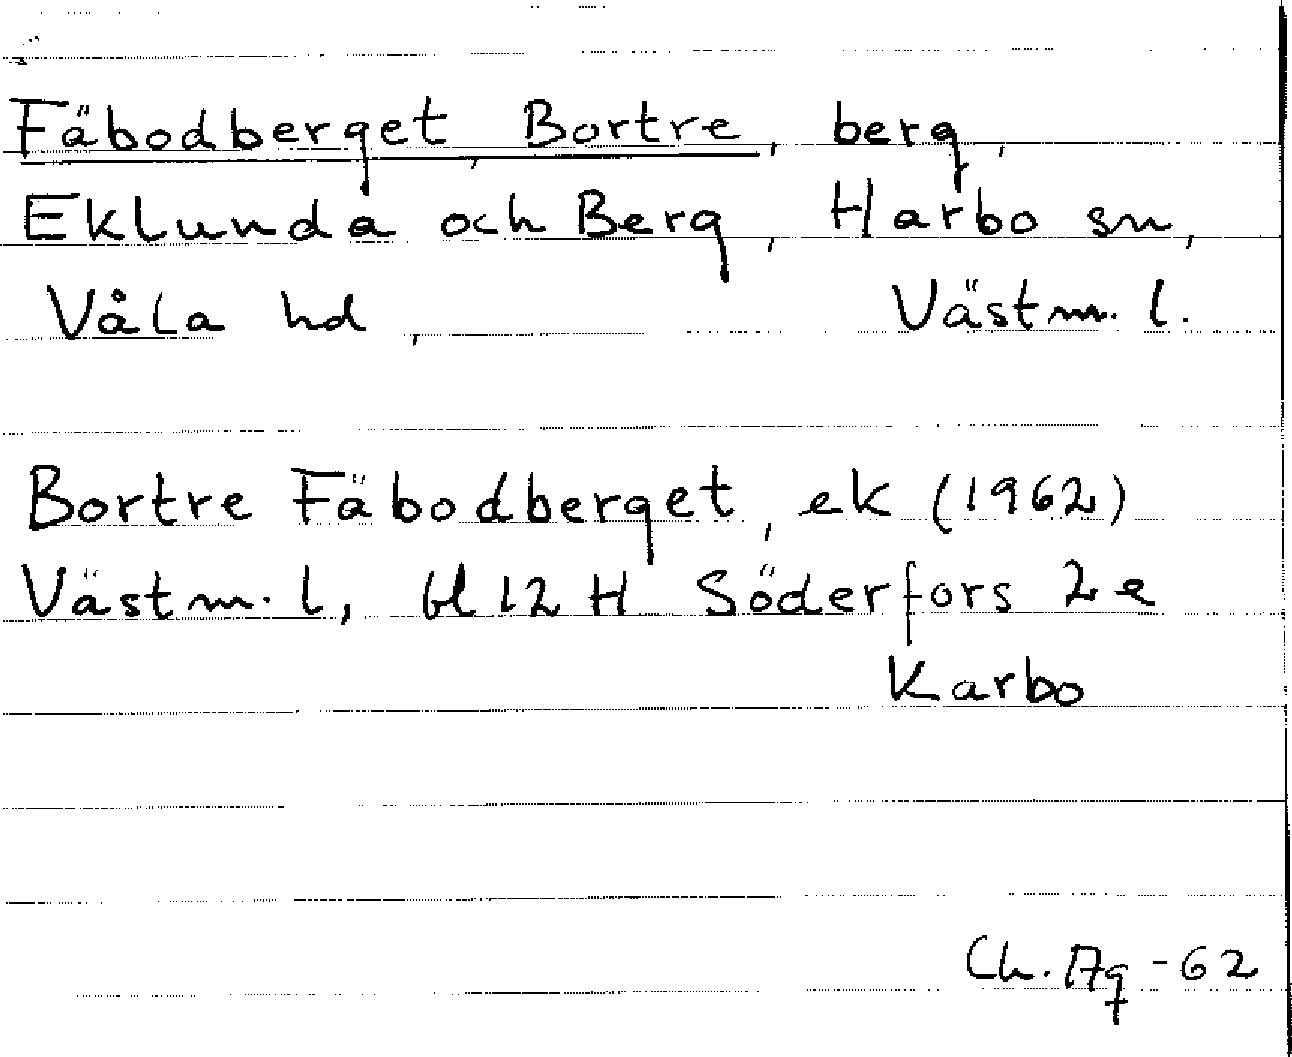 Fäbodberget, Bortre, berg,
Eklunda och Berg, Harbo sn,
Våla hd, Västm. l.
Bortre Fäbodberget, ek (1962)
Västm. l, bl 12 H Söderfors 2e
Karbo
Ch. -62